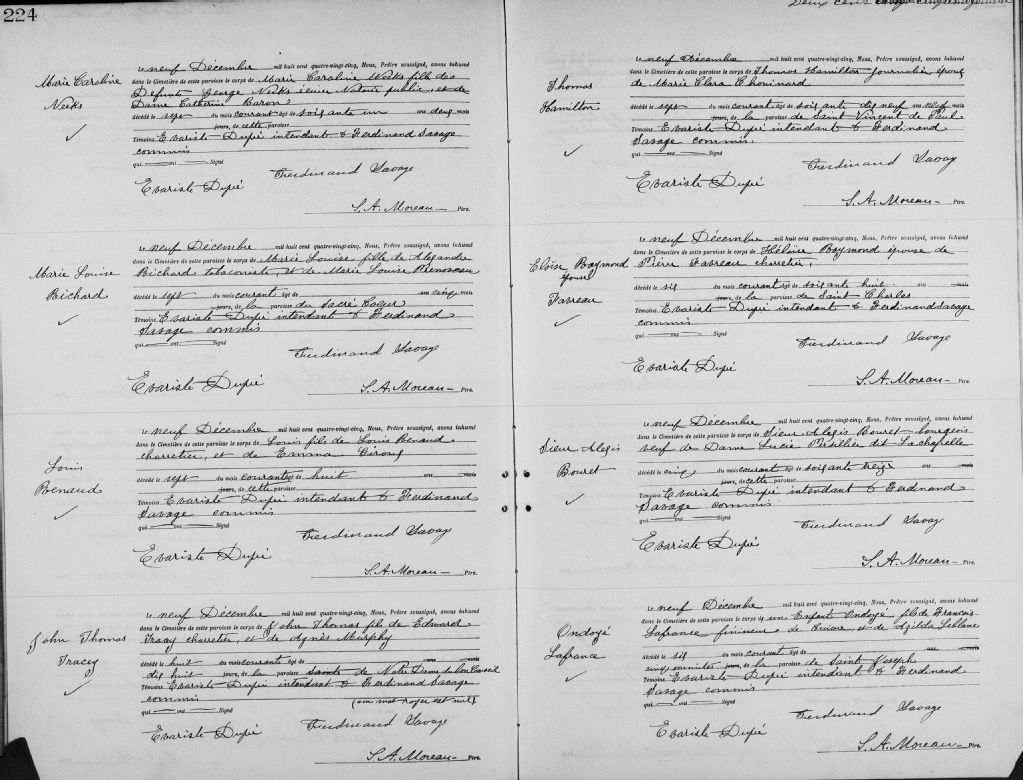 224
Marie Caroline
Neiks
Le neuf Décembre mil huit cent quatre-vingt-cinq, Nous, Prêtre soussigné, avons inhumé
dans le Cimetière de cette paroisse le corps de Marie Caroline Neiks fille des
Defunts George Neiks écuier Notaire public, et de
Dame Catherine Baron
décédé le sept du mois courant âgé de soixante un ans deux mois
jours, de cette paroisse
Témoins Evariste Dupré intendant & Ferdinand Savage
commis
qui ont Signé
Ferdinand Savage
Evariste Dupré
S. A. Moreau Ptre.
Marie Louise
Richard
Le neuf Décembre mil huit cent quatre-vingt-cinq, Nous, Prêtre soussigné, avons inhumé
dans le Cimetière de cette paroisse le corps de Marie Louise fille de Alexandre
Richard tabaconiste, et de Marie Louise
décédé le sept du mois courant âgé de ans cinq mois
jours, de la paroisse du Sacré Coeur
Témoins Evariste Dupré intendant & Ferdinand
Savage commis
qui ont Signé
Ferdinand Savage
Evariste Dupré
S. A. Moreau Ptre.
Louis
Renaud
Le neuf Décembre mil huit cent quatre-vingt-cinq, Nous, Prêtre soussigné, avons inhumé
dans le Cimetière de cette paroisse le corps de Louis fils de Louis Renaud
charretier, et de Emma Giroux
décédé le sept du mois courant âgé de huit ans mois
jours, de cette paroisse
Témoins Evariste Dupré intendant & Ferdinand
Savage commis
qui ont Signé
Ferdinand Savage
Evariste Dupré
S. A. Moreau Ptre.
John Thomas
Tracey
Le neuf Décembre mil huit cent quatre-vingt-cinq, Nous, Prêtre soussigné, avons inhumé
dans le Cimetière de cette paroisse le corps de John Thomas fils de Edward
Tracy charretier, et de Agnès Murphy
décédé le huit du mois courant âgé de
dix huit jours, de la paroisse de Notre Dame de bon Conseil
Témoins Evariste Dupré intendant & Ferdinand Savage
commis (un mot rayer est nul)
qui ont Signé
Ferdinand Savage
Evariste Dupré
S. A. Moreau Ptre.
Deux cent
Thomas
Hamilton
Le neuf Décembre mil huit cent quatre-vingt-cinq, Nous, Prêtre soussigné, avons inhumé
dans le Cimetière de cette paroisse le corps de Thomas Hamilton journalier, époux
de Marie Clara Chouinard
décédé le sept du mois courant âgé de soixante dix neuf ans neuf mois
jours, de la paroisse de Saint Vincent de Paul
Témoins Evariste Dupré intendant & Ferdinand
Savage commis.
qui ont Signé
Ferdinand Savage
Evariste Dupré
S. A. Moreau Ptre.
Eloïse Raymond
Favreau
Le neuf Décembre mil huit cent quatre-vingt-cinq, Nous, Prêtre soussigné, avons inhumé
dans le Cimetière de cette paroisse le corps de Héloïse Raymond épouse de
Pierre Favreau charretier,
décédé le six du mois courant âgé de soixante huit ans mois
jours, de la paroisse de Saint Charles
Témoins Evariste Dupré intendant & Ferdinand Savage
commis
qui ont Signé
Ferdinand Savage
Evariste Dupré
S. A. Moreau Ptre.
Sieur Alexis
Bouret
Le neuf Décembre mil huit cent quatre-vingt-cinq, Nous, Prêtre soussigné, avons inhumé
dans le Cimetière de cette paroisse le corps de Sieur Alexis Bouret bourgeois
veuf de Dame Lucie dit Lachapelle
décédé le cinq du mois courant âgé de soixante treize ans mois
jours, de cette paroisse
Témoins Evariste Dupré intendant & Ferdinand
Savage commis
qui ont Signé
Ferdinand Savage
Evariste Dupré
S. A. Moreau Ptre.
Ondoyé
Lafrance
Le neuf Décembre mil huit cent quatre-vingt-cinq, Nous, Prêtre soussigné, avons inhumé
dans le Cimetière de cette paroisse le corps de un Enfant Ondoyé fils de François
Lafrance finisseur de Cuivre, et de Azilda Leblanc
décédé le six du mois courant âgé de ans mois
cinq minutes jours, de la paroisse de Saint Joseph
Témoins Evariste Dupré intendant & Ferdinand
Savage commis
qui ont Signé
Ferdinand Savage
Evariste Dupré
S. A. Moreau Ptre.